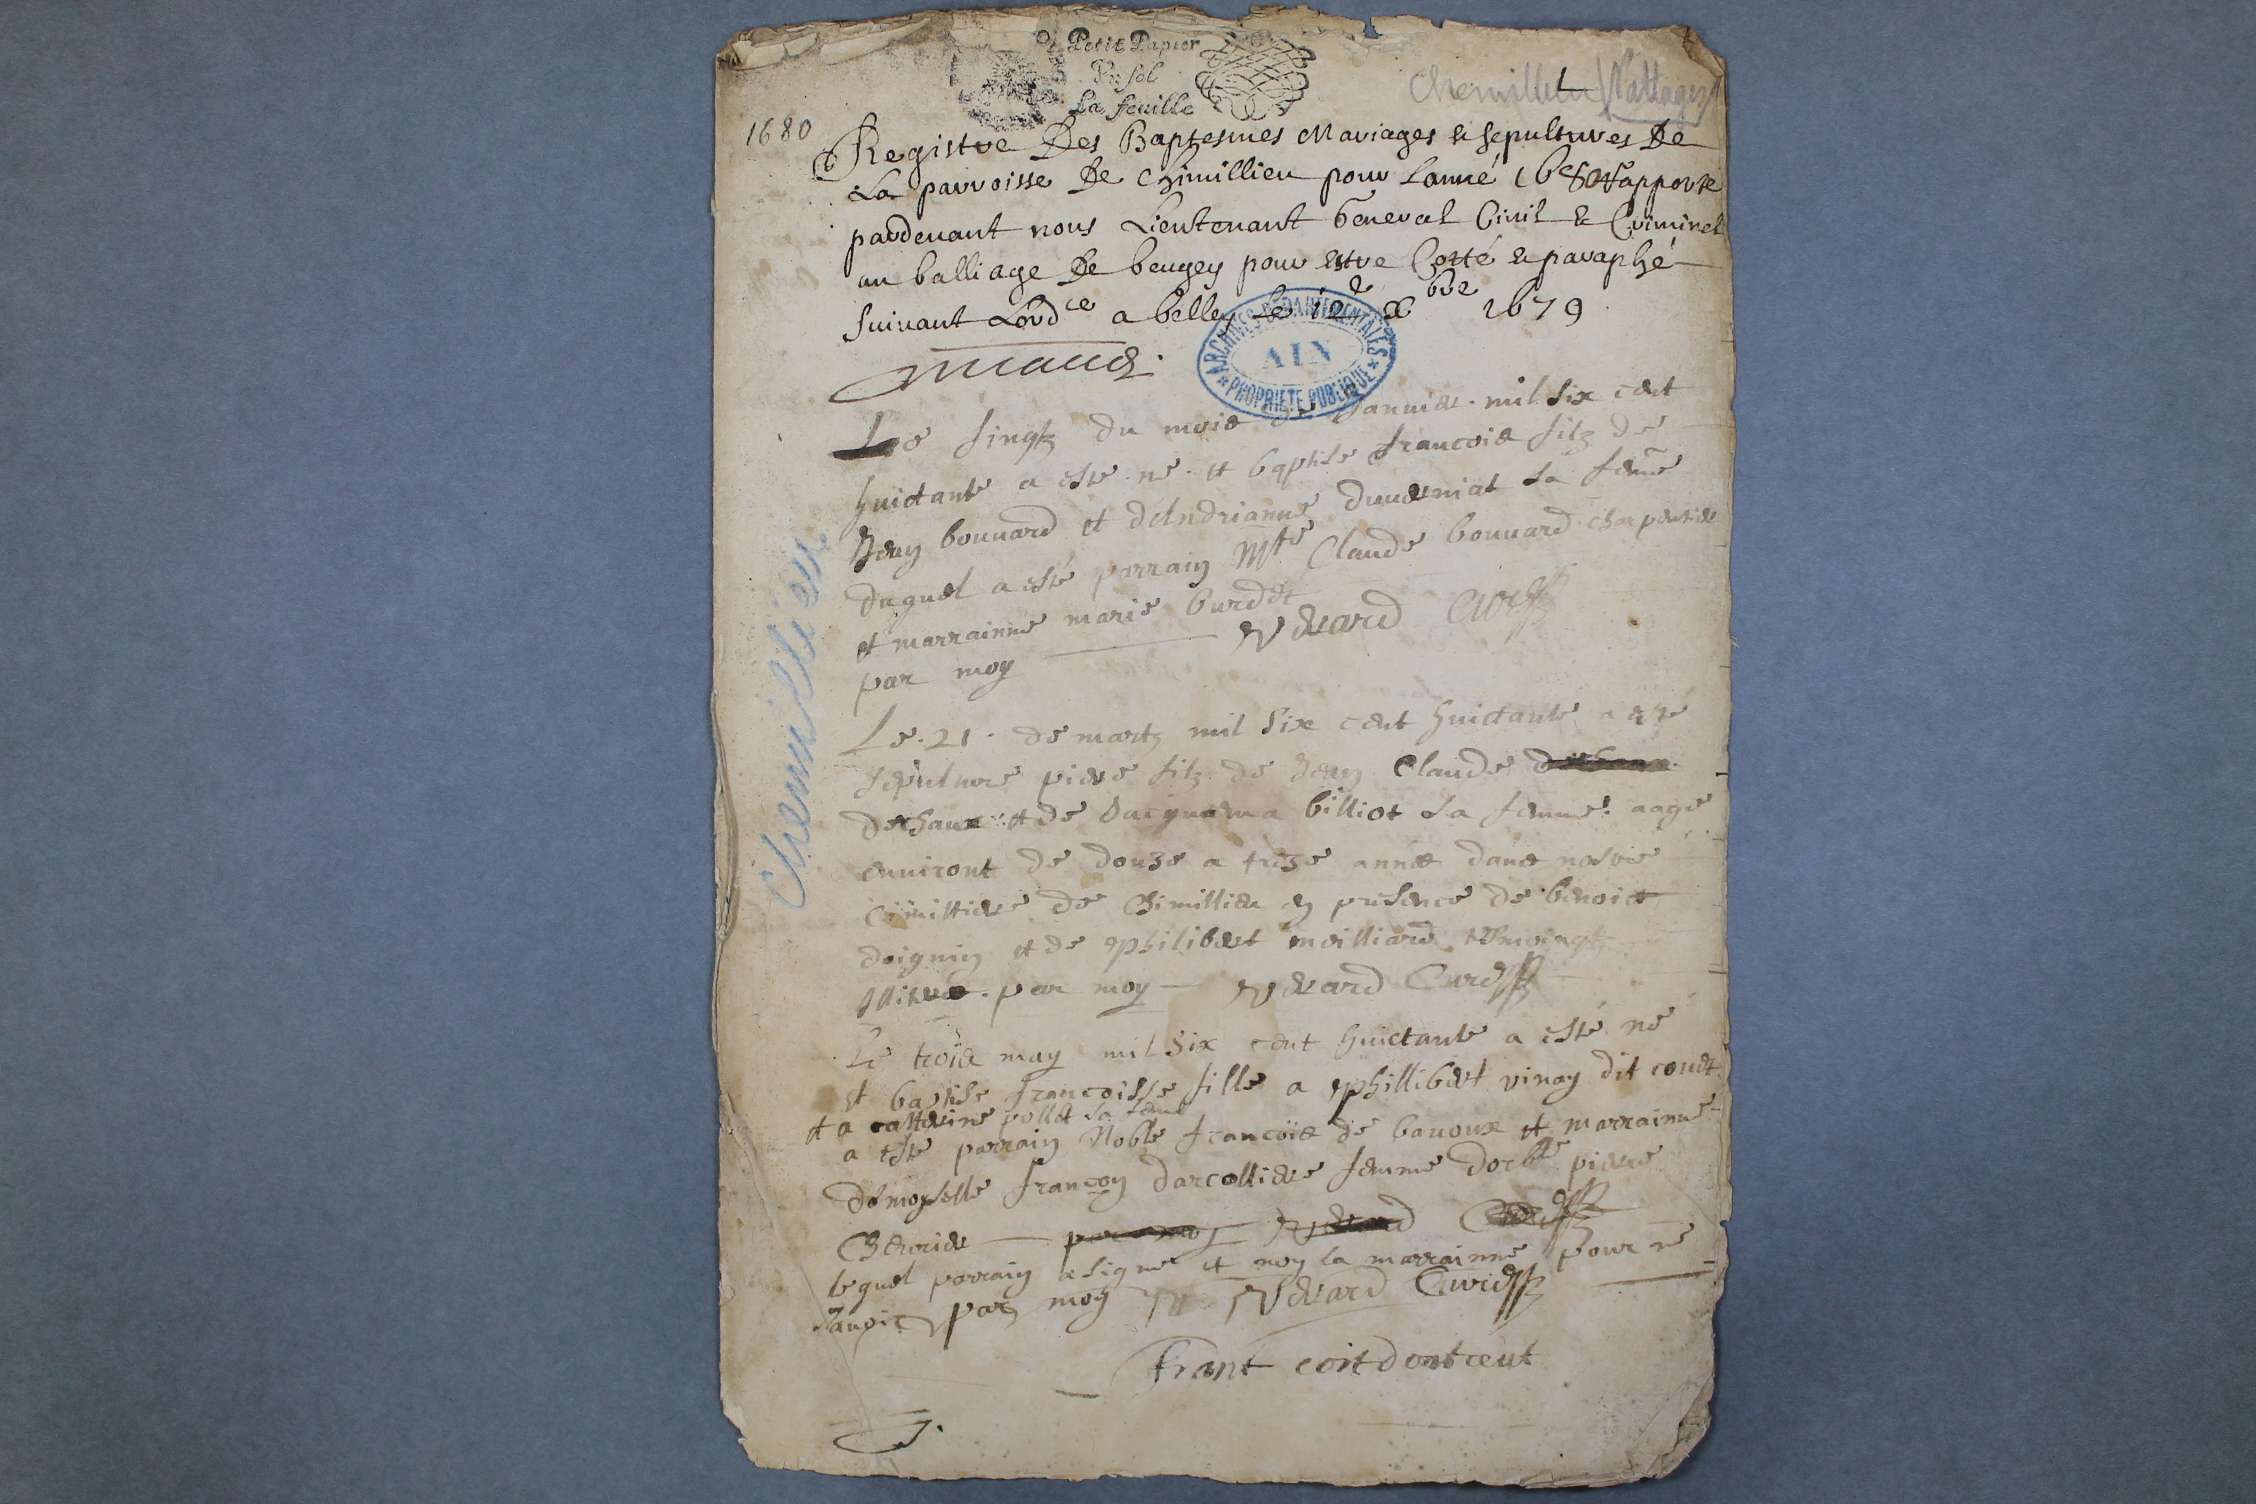 Petit Papier
Un sol
La feuille
Chemillieu Nattages
1680
Registre Des Baptesmes Mariages & sepultures De
La parroisse De Chimillieu pour Lanné 1680 rapporte
pardevant nous Lieutenant General Civil & Criminel
au balliage De beugey pour estre Cotté & paraphé
suivant Lordce a belley Le 12e Xbre 1679
ARCHIVES DEPARTEMENTALES
AIN
PROPRIETE PUBLIQUE
Chemillieu
Le sinqz du mois de Janvier mil six cent
huictante a este ne et baptise francois filz de
Jean bonnard et dAndrianne sa femme
duquel a esté parrain Mtre Claude bonnard charpentier
et marrainne marie burdet
par moy Revard Cure
Le 21 de martz mil six cent huictante a esté
sepulture piere filz de Jean Claude
dechaux et de Jacquema billiot sa femme aage
environt de douze a treze année dans nostre
cimittiere de Chimillieu en presence de benoict
doignin et de philibert moilliard tesmoingt
par moy Revard Cure
Le trois may mil six cent huictante a esté né
et baptise francoisse fille a phillibert vinay dit
et a catterine pollet sa feme
a este parrain Noble francois de bavoux et marrainne
demoyselle francoy darcolliere femme piere
Cherrier par moy Revard Cure
lequel parrain a signe et non la marrainne pour ne
savoir par moy Revard Cure